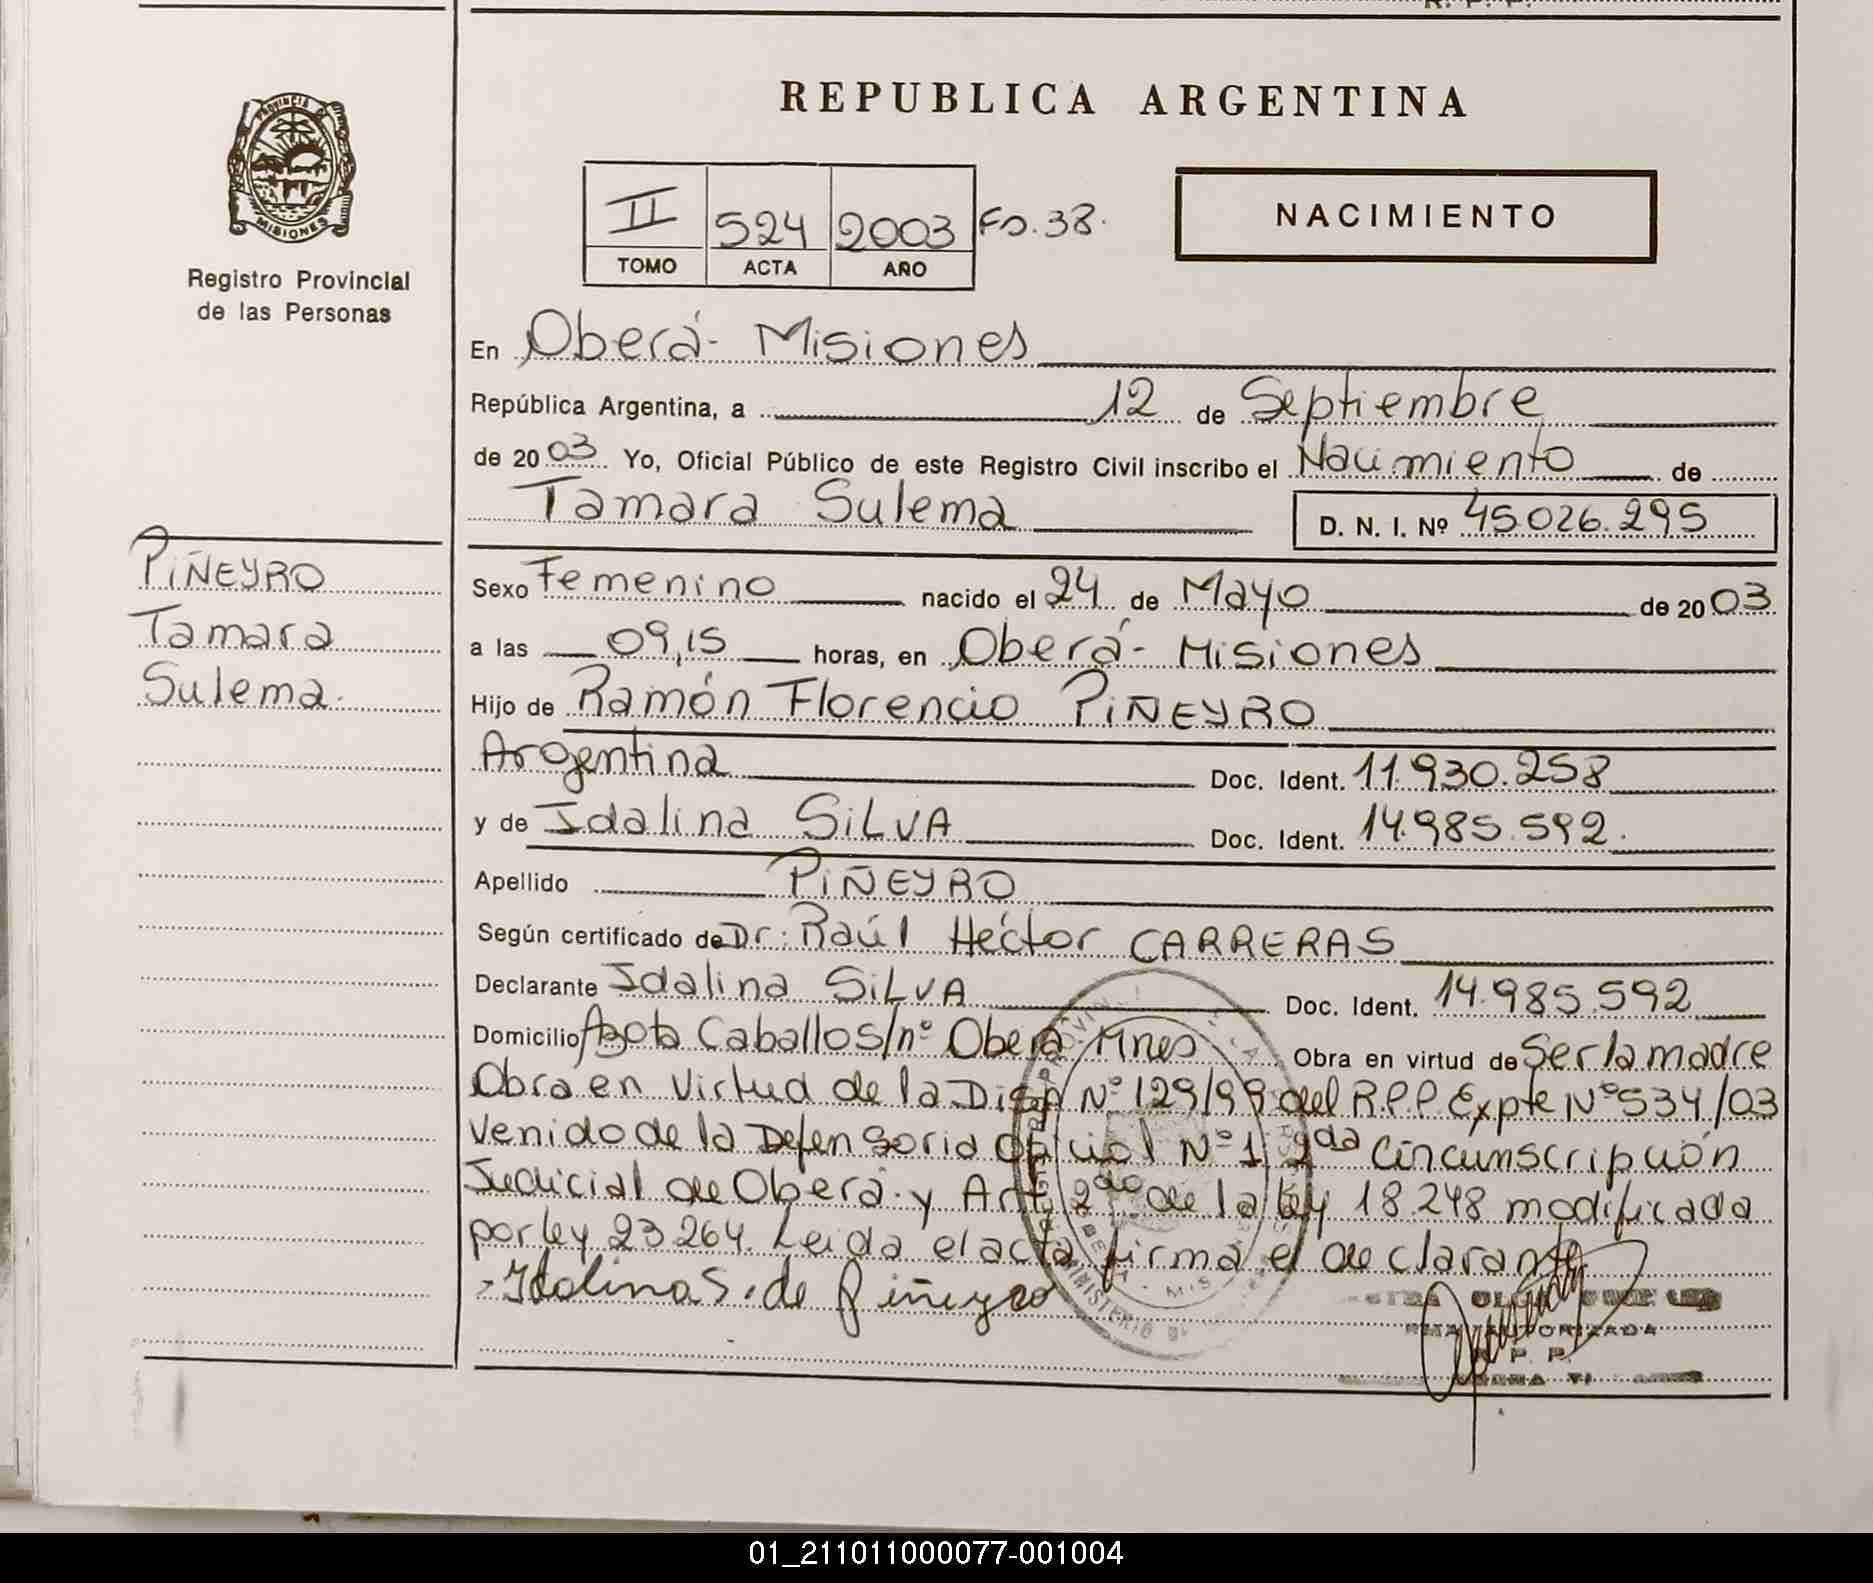 REPUBLICA ARGENTINA
PROVINCIA
MISIONES
Registro Provincial
de las Personas
II 524 2003 Fo. 38.
TOMO ACTA AÑO
NACIMIENTO
En Oberá - Misiones
República Argentina, a 12 de Septiembre
de 2003. Yo, Oficial Público de este Registro Civil inscribo el Nacimiento de
Tamara Sulema D. N. I. Nº 45.026.295
PIÑEYRO
Tamara
Sulema.
Sexo Femenino nacido el 24 de Mayo de 2003
a las 09,15 horas, en Oberá - Misiones
Hijo de Ramón Florencio PIÑEYRO
Argentina Doc. Ident. 11.930.258
y de Idalina SILVA Doc. Ident. 14.985.592.
Apellido PIÑEYRO
Según certificado de Dr. Raúl Héctor CARRERAS
Declarante Idalina SILVA Doc. Ident. 14.985.592
Domicilio Caballos/nº Oberá Mnes Obra en virtud de Ser la madre
Obra en virtud de la Disp Nº 129/99 del R.P.P. Expte Nº 534/03
venido de la Defensoria Oficial Nº 1 2da Circunscripción
Judicial de Oberá. y Art. 2do de la ley 18.248 modificada
por ley 23.264. Leida el acta firma el declarante
Idalina S. de Piñeyro
AUTORIZADA
R. P. P.
01_211011000077-001004